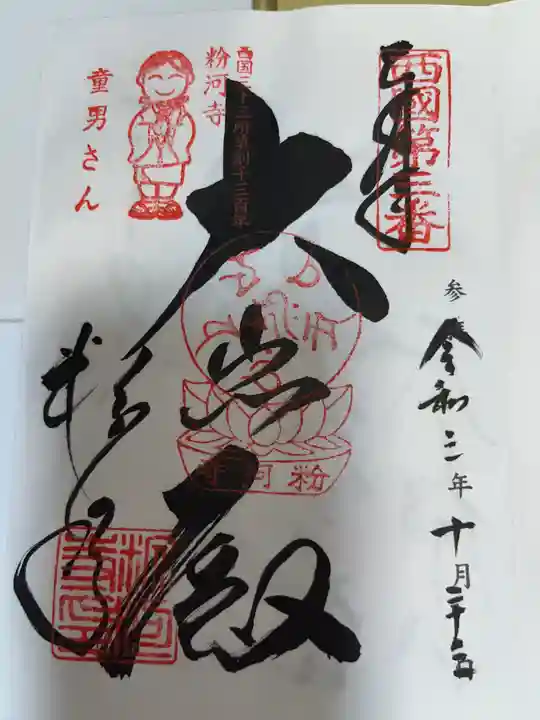 奉拝
西國第三番
参
令和三年十月二十五
大悲殿
西国三十三所草創千三百年
粉河寺
童男さん
粉河寺
粉河寺